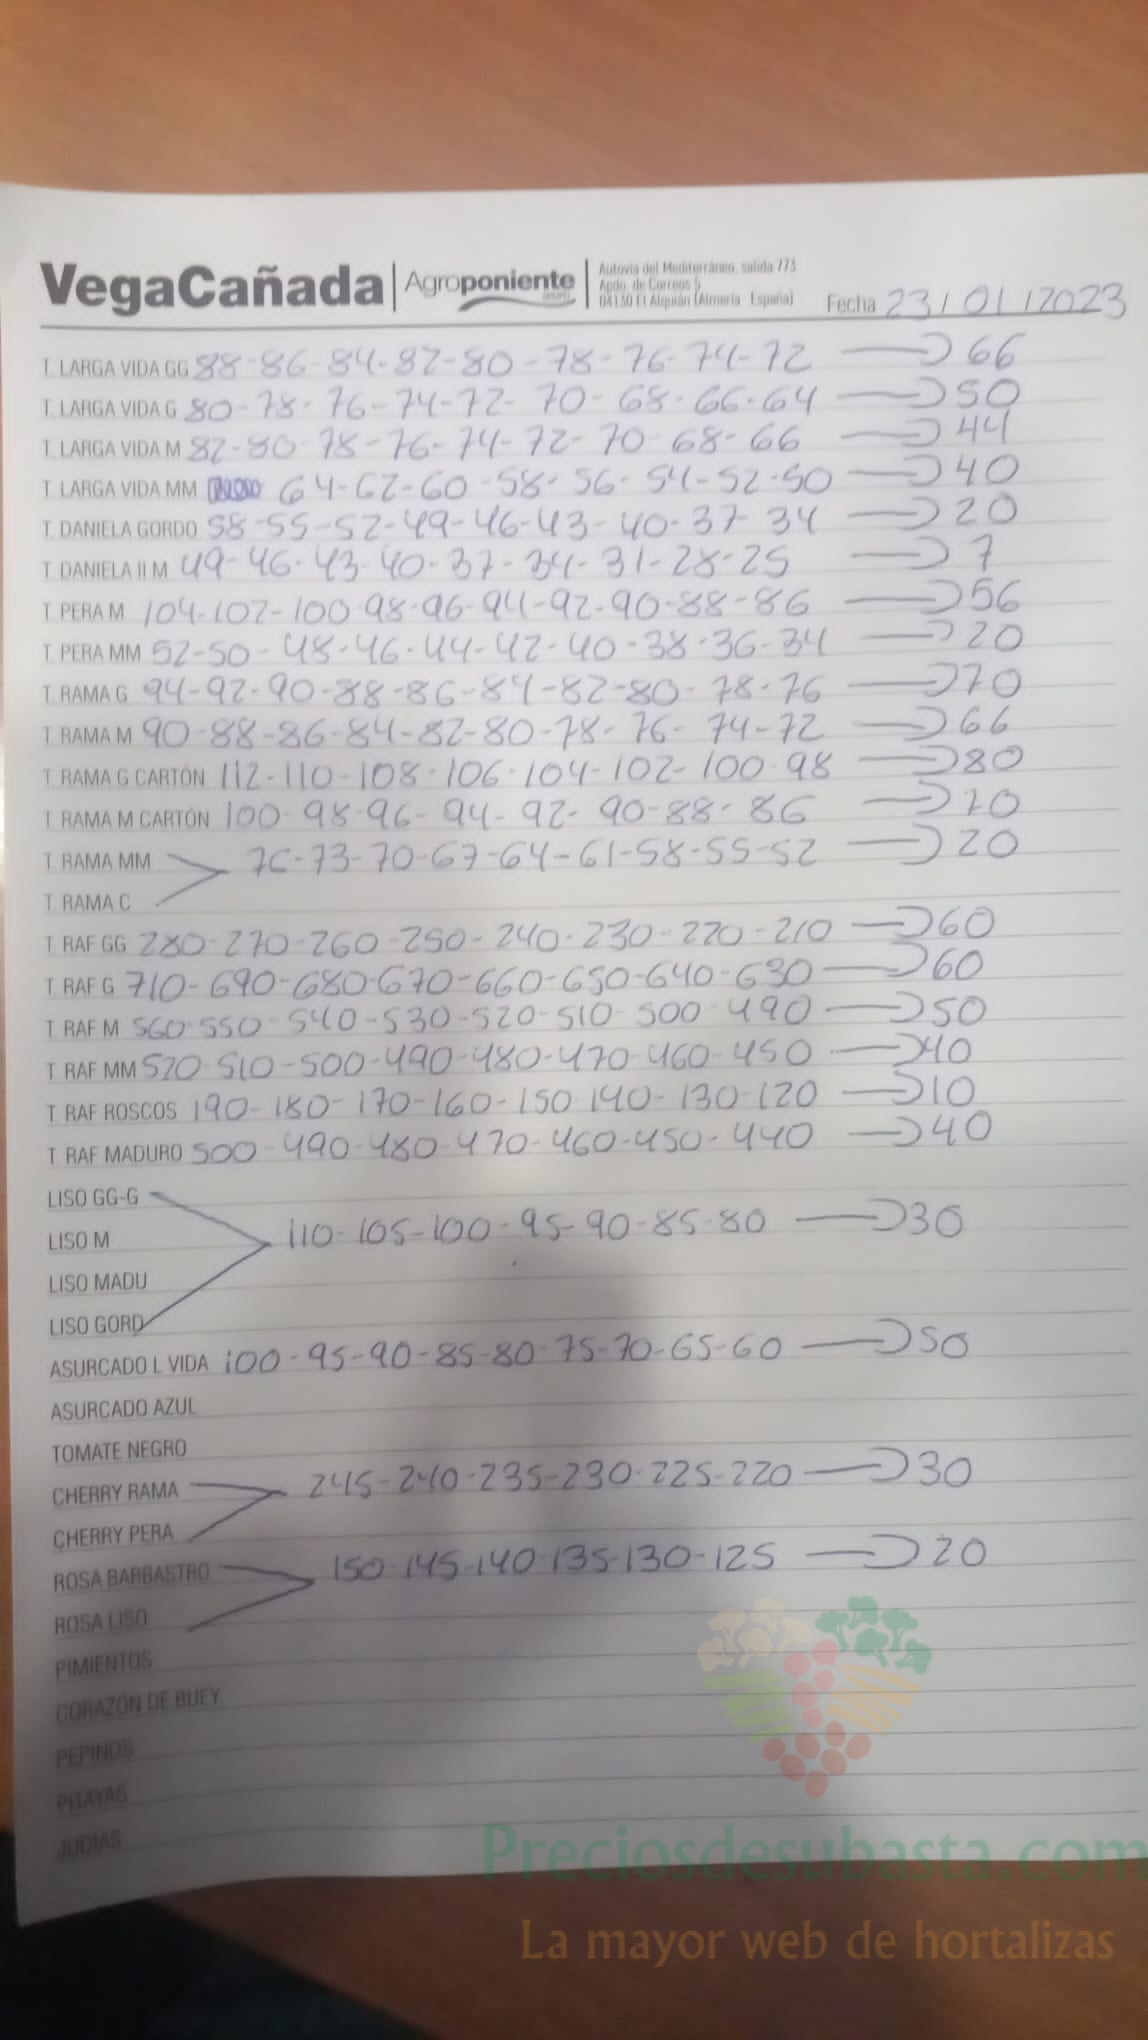 VegaCañada | Agroponiente
Autovía del Mediterráneo, salida 773
Apdo. de Correos 5
04130 El Alquián (Almería - España)
Fecha 23/01/2023
T. LARGA VIDA GG 88-86-84-82-80-78-76-74-72 66
T. LARGA VIDA G 80-78-76-74-72-70-68-66-64 50
T. LARGA VIDA M 82-80-78-76-74-72-70-68-66 44
T. LARGA VIDA MM 64-62-60-58-56-54-52-50 40
T. DANIELA GORDO 58-55-52-49-46-43-40-37-34 20
T. DANIELA II M 49-46-43-40-37-34-31-28-25 7
T. PERA M 104-102-100-98-96-94-92-90-88-86 56
T. PERA MM 52-50-48-46-44-42-40-38-36-34 20
T. RAMA G 94-92-90-88-86-84-82-80-78-76 70
T. RAMA M 90-88-86-84-82-80-78-76-74-72 66
T. RAMA G CARTÓN 112-110-108-106-104-102-100-98 80
T. RAMA M CARTÓN 100-98-96-94-92-90-88-86 70
T. RAMA MM 76-73-70-67-64-61-58-55-52 20
T. RAMA C
T. RAF GG 280-270-260-250-240-230-220-210 60
T. RAF G 710-690-680-670-660-650-640-630 60
T. RAF M 560-550-540-530-520-510-500-490 50
T. RAF MM 520-510-500-490-480-470-460-450 40
T. RAF ROSCOS 190-180-170-160-150-140-130-120 10
T. RAF MADURO 500-490-480-470-460-450-440 40
LISO GG-G
LISO M 110-105-100-95-90-85-80 30
LISO MADU
LISO GORD
ASURCADO L VIDA 100-95-90-85-80-75-70-65-60 50
ASURCADO AZUL
TOMATE NEGRO
CHERRY RAMA 245-240-235-230-225-220 30
CHERRY PERA
ROSA BARBASTRO 150-145-140-135-130-125 20
ROSA LISO
PIMIENTOS
CORAZÓN DE BUEY
PEPINOS
PITAYAS
JUDIAS
Preciosdesubasta.com
La mayor web de hortalizas